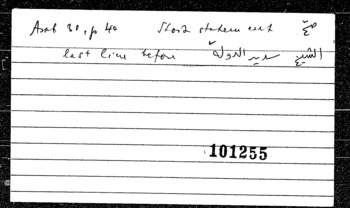 Arab 30, p 40 Short statement صح
last line before سديد الدولة الشيخ
101255